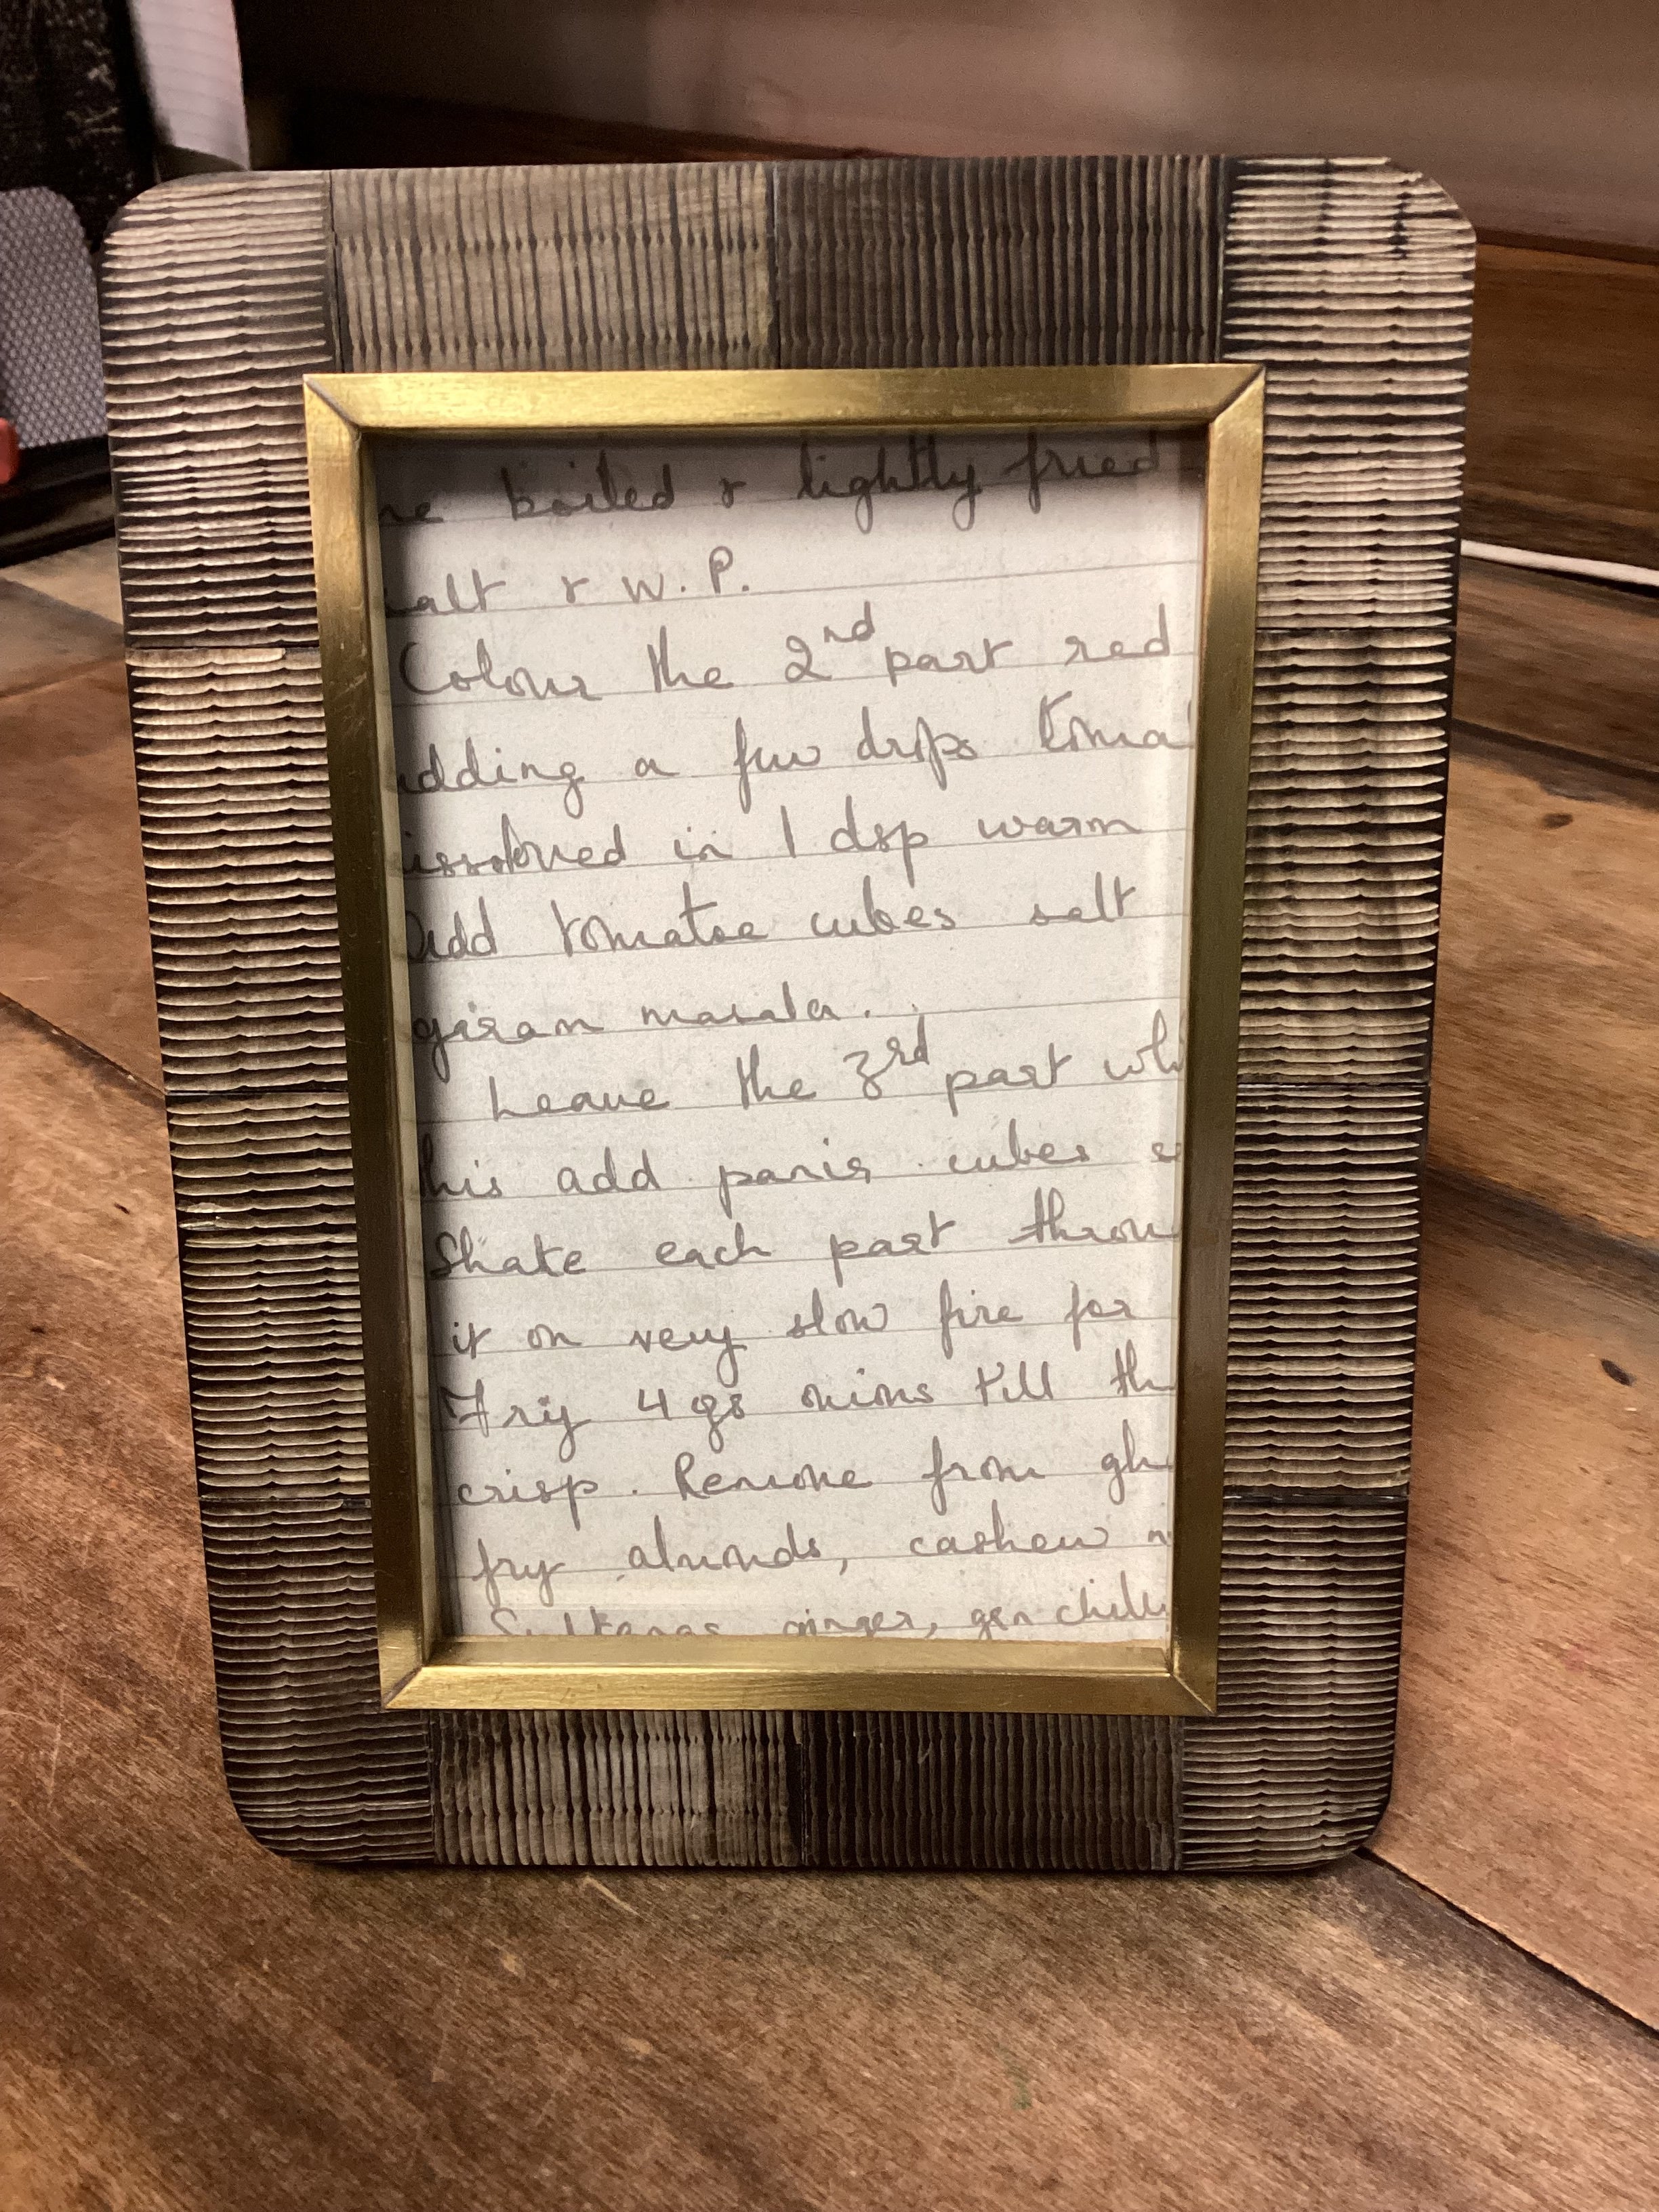 he boiled & lightly fried
alt & W.P.
Colour the 2nd part red
dding a few drops toma
issolved in 1 dsp warm
Add tomatoe cubes salt
garam masala.
Leave the 3rd part whi
his add panir cubes
Shake each part throu
it on very slow fire for
Fry 4 onions till th
crisp. Remove from gh
fry almonds, cashew n
Sultanas ginger, grn chilli